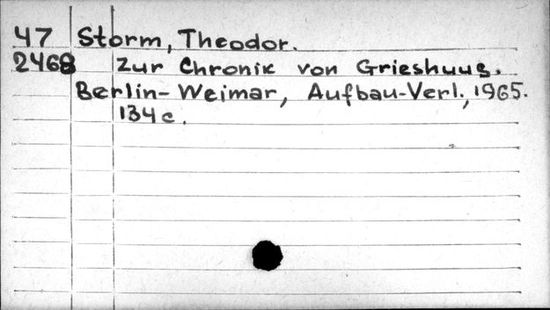 47 Storm, Theodor.
2468 Zur Chronik von Grieshuus.
Berlin-Weimar, Aufbau-Verl., 1965.
134 c.